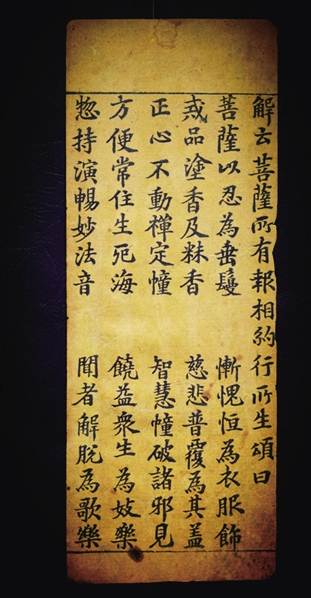 解云菩薩所有報相約行所生頌曰
菩薩以忍為垂鬘 慚愧恒為衣服飾
戒品塗香及粖香 慈悲普覆為其盖
正心不動禪定幢 智慧幢破諸邪見
方便常住生死海 饒益衆生為妓樂
惣持演暢妙法音 聞者解脫為歌樂